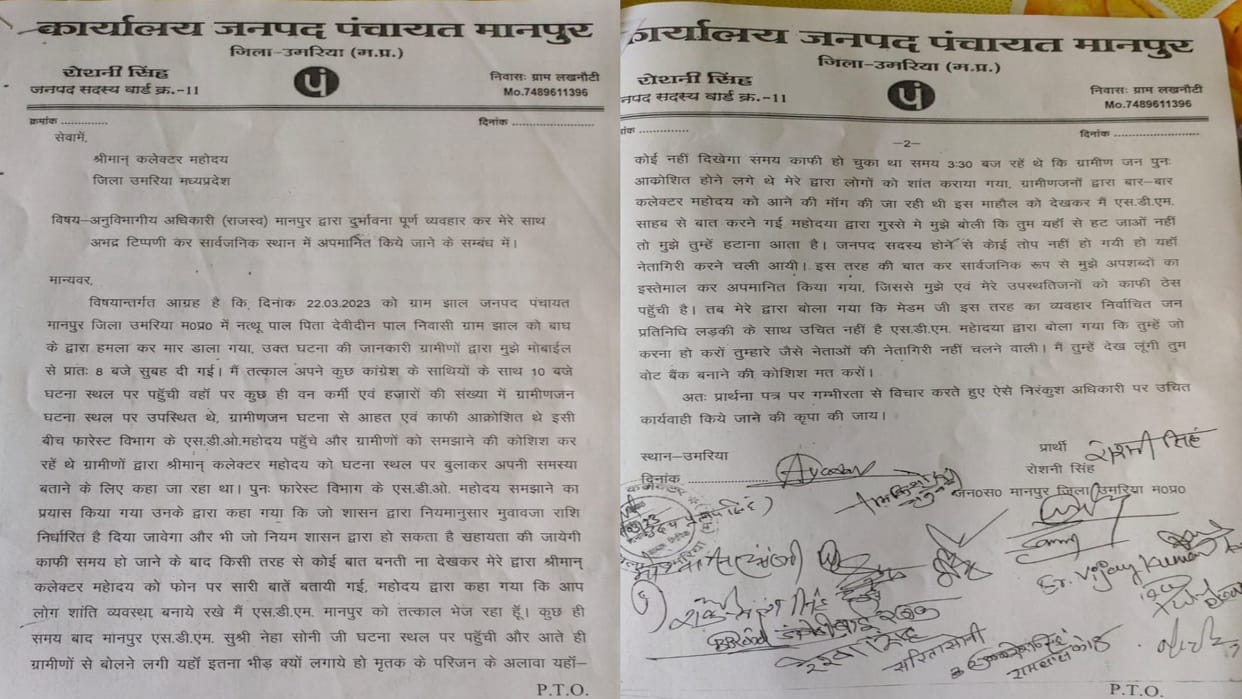 कार्यालय जनपद पंचायत मानपुर
जिला–उमरिया (म.प्र.)
रोशनी सिंह
जनपद सदस्य वार्ड क्र.–11
निवासः ग्राम लखनौटी
Mo.7489611396
क्रमांक .............
दिनांक ........................
सेवामें,
श्रीमान् कलेक्टर महोदय
जिला उमरिया मध्यप्रदेश
विषय–अनुविभागीय अधिकारी (राजस्व) मानपुर द्वारा दुर्भावना पूर्ण व्यवहार कर मेरे साथ
अभद्र टिप्पणी कर सार्वजनिक स्थान में अपमानित किये जाने के सम्बंध में।
मान्यवर,
विषयान्तर्गत आग्रह है कि, दिनांक 22.03.2023 को ग्राम झाल जनपद पंचायत
मानपुर जिला उमरिया म0प्र0 में नत्थू पाल पिता देवीदीन पाल निवासी ग्राम झाल को बाघ
के द्वारा हमला कर मार डाला गया, उक्त घटना की जानकारी ग्रामीणों द्वारा मुझे मोबाईल
से प्रातः 8 बजे सुबह दी गई। मैं तत्काल अपने कुछ कांग्रेश के साथियों के साथ 10 बजे
घटना स्थल पर पहुँची वहाँ पर कुछ ही वन कर्मी एवं हजारों की संख्या में ग्रामीणजन
घटना स्थल पर उपस्थित थे, ग्रामीणजन घटना से आहत एवं काफी आक्रोशित थे इसी
बीच फारेस्ट विभाग के एस.डी.ओ.महोदय पहुँचे और ग्रामीणों को समझाने की कोशिश कर
रहें थे ग्रामीणों द्वारा श्रीमान् कलेक्टर महोदय को घटना स्थल पर बुलाकर अपनी समस्या
बताने के लिए कहा जा रहा था। पुनः फारेस्ट विभाग के एस.डी.ओ. महोदय समझाने का
प्रयास किया गया उनके द्वारा कहा गया कि जो शासन द्वारा नियमानुसार मुवावजा राशि
निर्धारित है दिया जावेगा और भी जो नियम शासन द्वारा हो सकता है सहायता की जायेगी
काफी समय हो जाने के बाद किसी तरह से कोई बात बनती ना देखकर मेरे द्वारा श्रीमान्
कलेक्टर महोदय को फोन पर सारी बाते बतायी गई, महोदय द्वारा कहा गया कि आप
लोग शांति व्यवस्था बनाये रखे मैं एस.डी.एम. मानपुर को तत्काल भेज रहा हूँ। कुछ ही
समय बाद मानपुर एस.डी.एम. सुश्री नेहा सोनी जी घटना स्थल पर पहुँची और आते ही
ग्रामीणों से बोलने लगी यहाँ इतना भीड़ क्यों लगाये हो मृतक के परिजन के अलावा यहाँ–
P.T.O.
कार्यालय जनपद पंचायत मानपुर
जिला–उमरिया (म.प्र.)
रोशनी सिंह
जनपद सदस्य वार्ड क्र.–11
निवासः ग्राम लखनौटी
Mo.7489611396
दिनांक ........................
–2–
कोई नहीं दिखेगा समय काफी हो चुका था समय 3:30 बज रहें थे कि ग्रामीण जन पुनः
आकोशित होने लगे थे मेरे द्वारा लोगों को शांत कराया गया, ग्रामीणजनों द्वारा बार–बार
कलेक्टर महोदय को आने की माँग की जा रही थी इस माहौल को देखकर मैं एस.डी.एम.
साहब से बात करने गई महोदया द्वारा गुरसे मे मुझे बोली कि तुम यहाँ से हट जाओं नहीं
तो मुझे तुम्हें हटाना आता है। जनपद सदस्य होने से कोई तोप नहीं हो गयी हो यहाँ
नेतागिरी करने चली आयी। इस तरह की बात कर सार्वजनिक रूप से मुझे अपशब्दों का
इस्तेमाल कर अपमानित किया गया, जिससे मुझे एवं मेरे उपस्थतिजनों को काफी ठेस
पहुँची है। तब मेरे द्वारा बोला गया कि मेडम जी इस तरह का व्यवहार निर्वाचित जन
प्रतिनिधि लड़की के साथ उचित नहीं है एस.डी.एम. महोदया द्वारा बोला गया कि तुम्हें जो
करना हो करों तुम्हारे जैसे नेताओं की नेतागिरी नहीं चलने वाली। मैं तुम्हें देख लूंगी तुम
वोट बैंक बनाने की कोशिश मत करों।
अतः प्रार्थना पत्र पर गम्भीरता से विचार करते हुए ऐसे निरंकुश अधिकारी पर उचित
कार्यवाही किये जाने की कृपा की जाय।
स्थान–उमरिया
प्रार्थी रोशनी सिंह
दिनांक ..................
रोशनी सिंह
जन०स० मानपुर जिला उमरिया म०प्र०
Er. Vijay Kumar
सरिता सोनी
P.T.O.